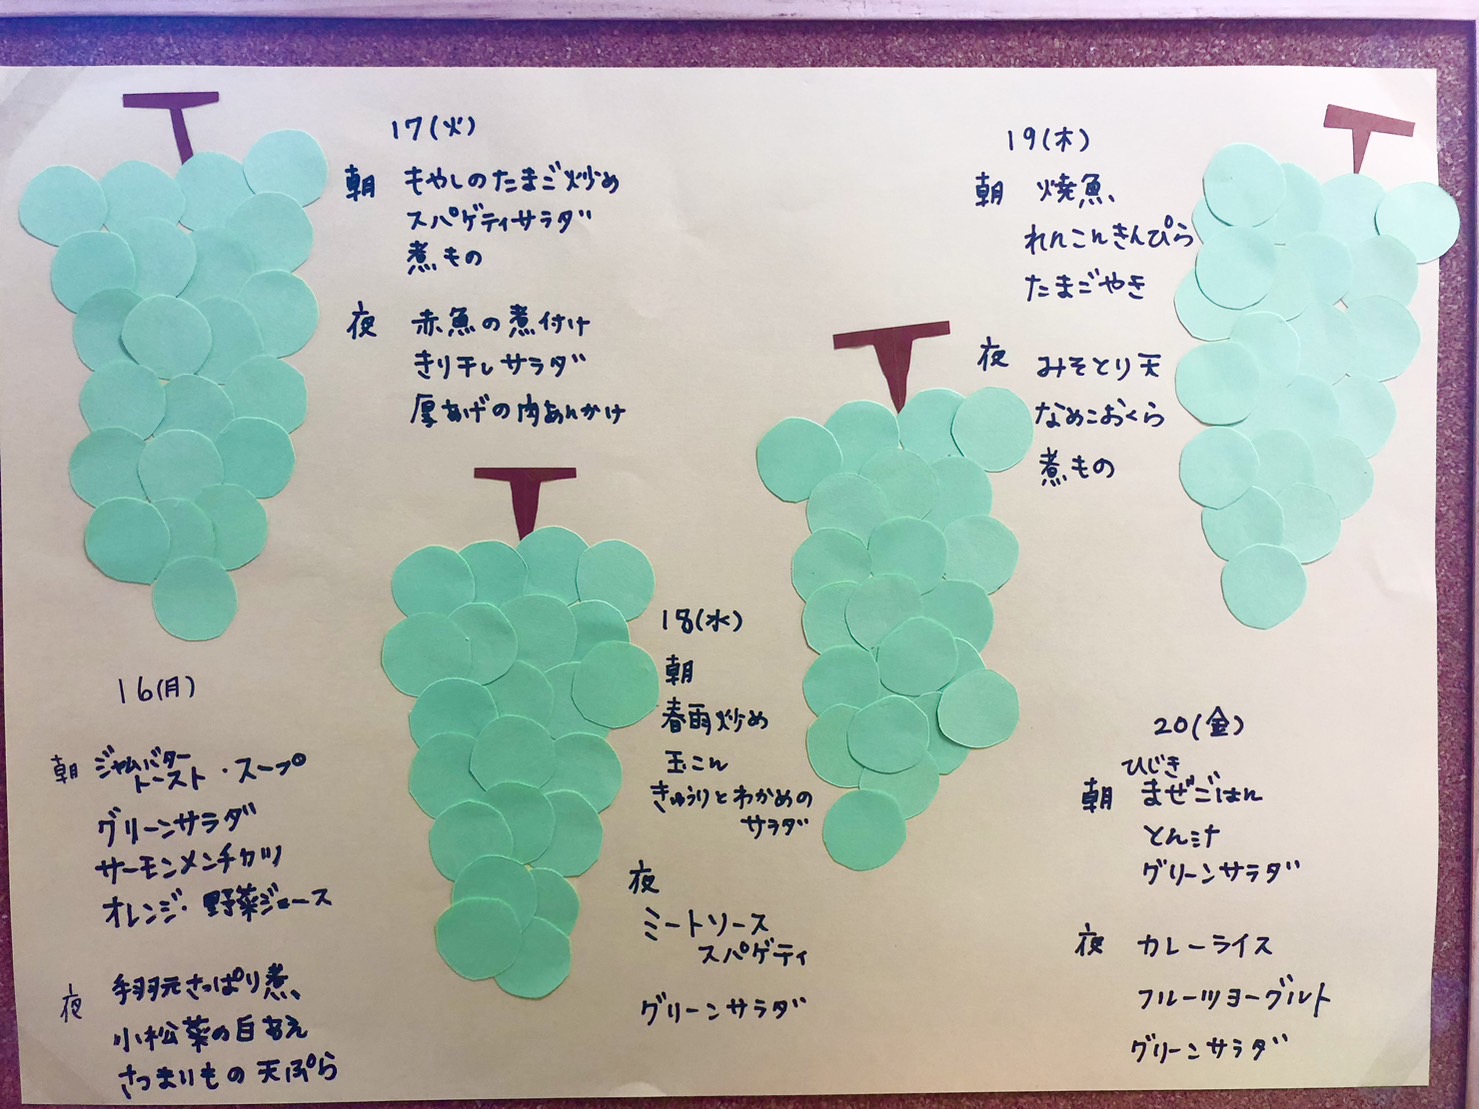 16(月)
朝 ジャムバター
トースト・スープ
グリーンサラダ
サーモンメンチカツ
オレンジ・野菜ジュース
夜 手羽元さっぱり煮、
小松菜の白あえ
さつまいもの天ぷら
17(火)
朝 もやしのたまご炒め
スパゲティサラダ
煮もの
夜 赤魚の煮付け
きり干しサラダ
厚あげの肉あんかけ
18(水)
朝
春雨炒め
玉こん
きゅうりとわかめの
サラダ
夜
ミートソース
スパゲティ
グリーンサラダ
19(木)
朝 焼魚、
れんこんきんぴら
たまごやき
夜 みそとり天
なめこおくら
煮もの
20(金)
ひじき
朝 まぜごはん
とん汁
グリーンサラダ
夜 カレーライス
フルーツヨーグルト
グリーンサラダ